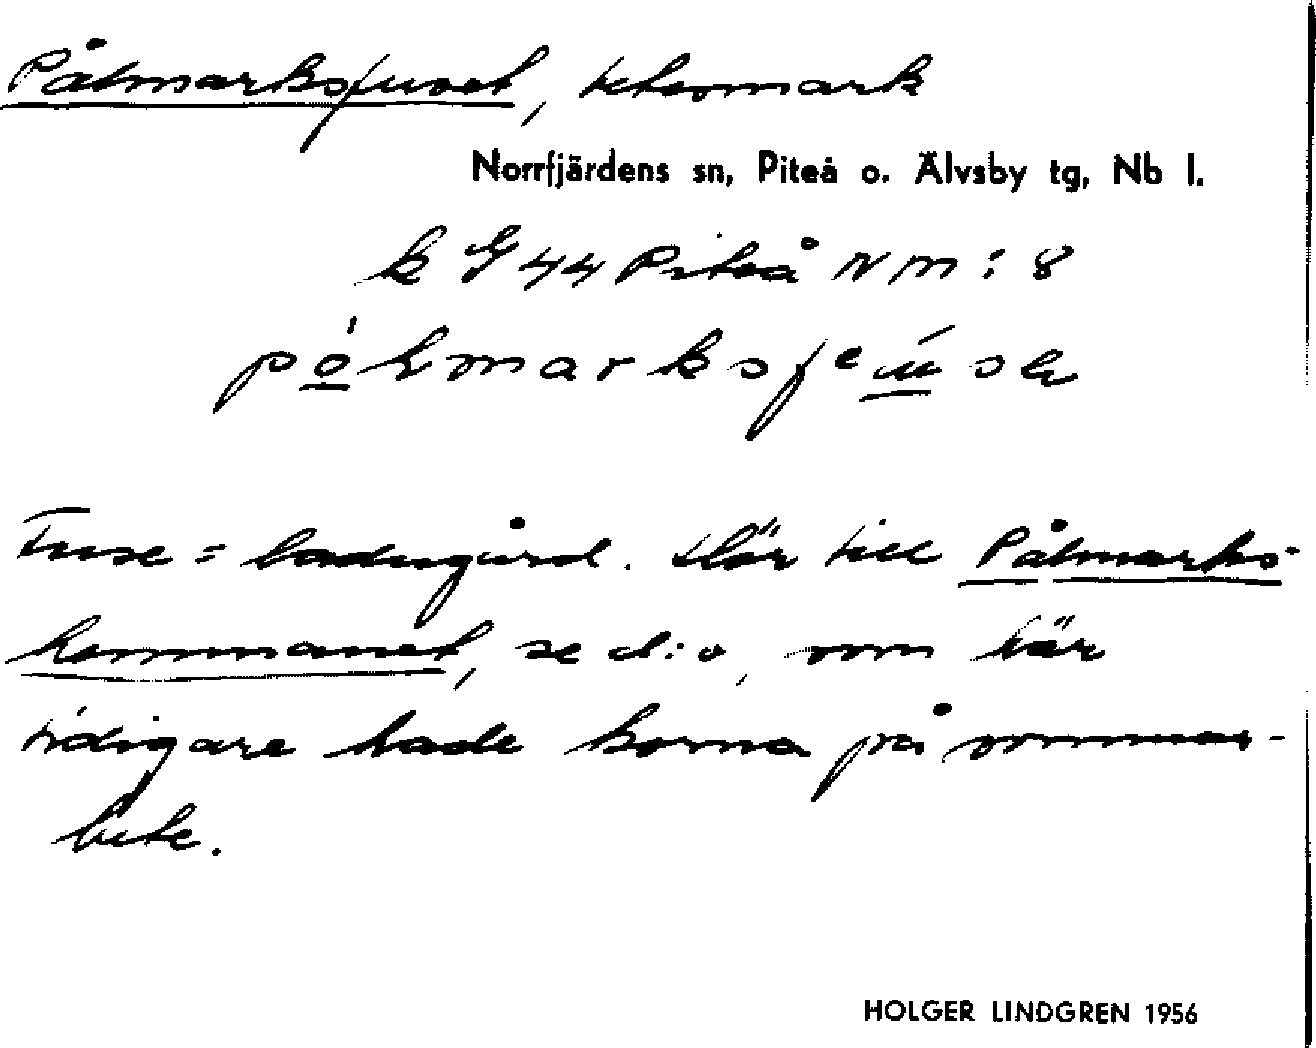 Pålmarksfuset, utesmark
Norrfjärdens sn, Piteå o. Älvsby tg, Nb l.
k G 44 Piteå NM: 8
Fuse = ladugård. Hör till Pålmarks-
hemmanet, se d:o, som här
tidigare hade korna på sommar-
bete.
HOLGER LINDGREN 1956